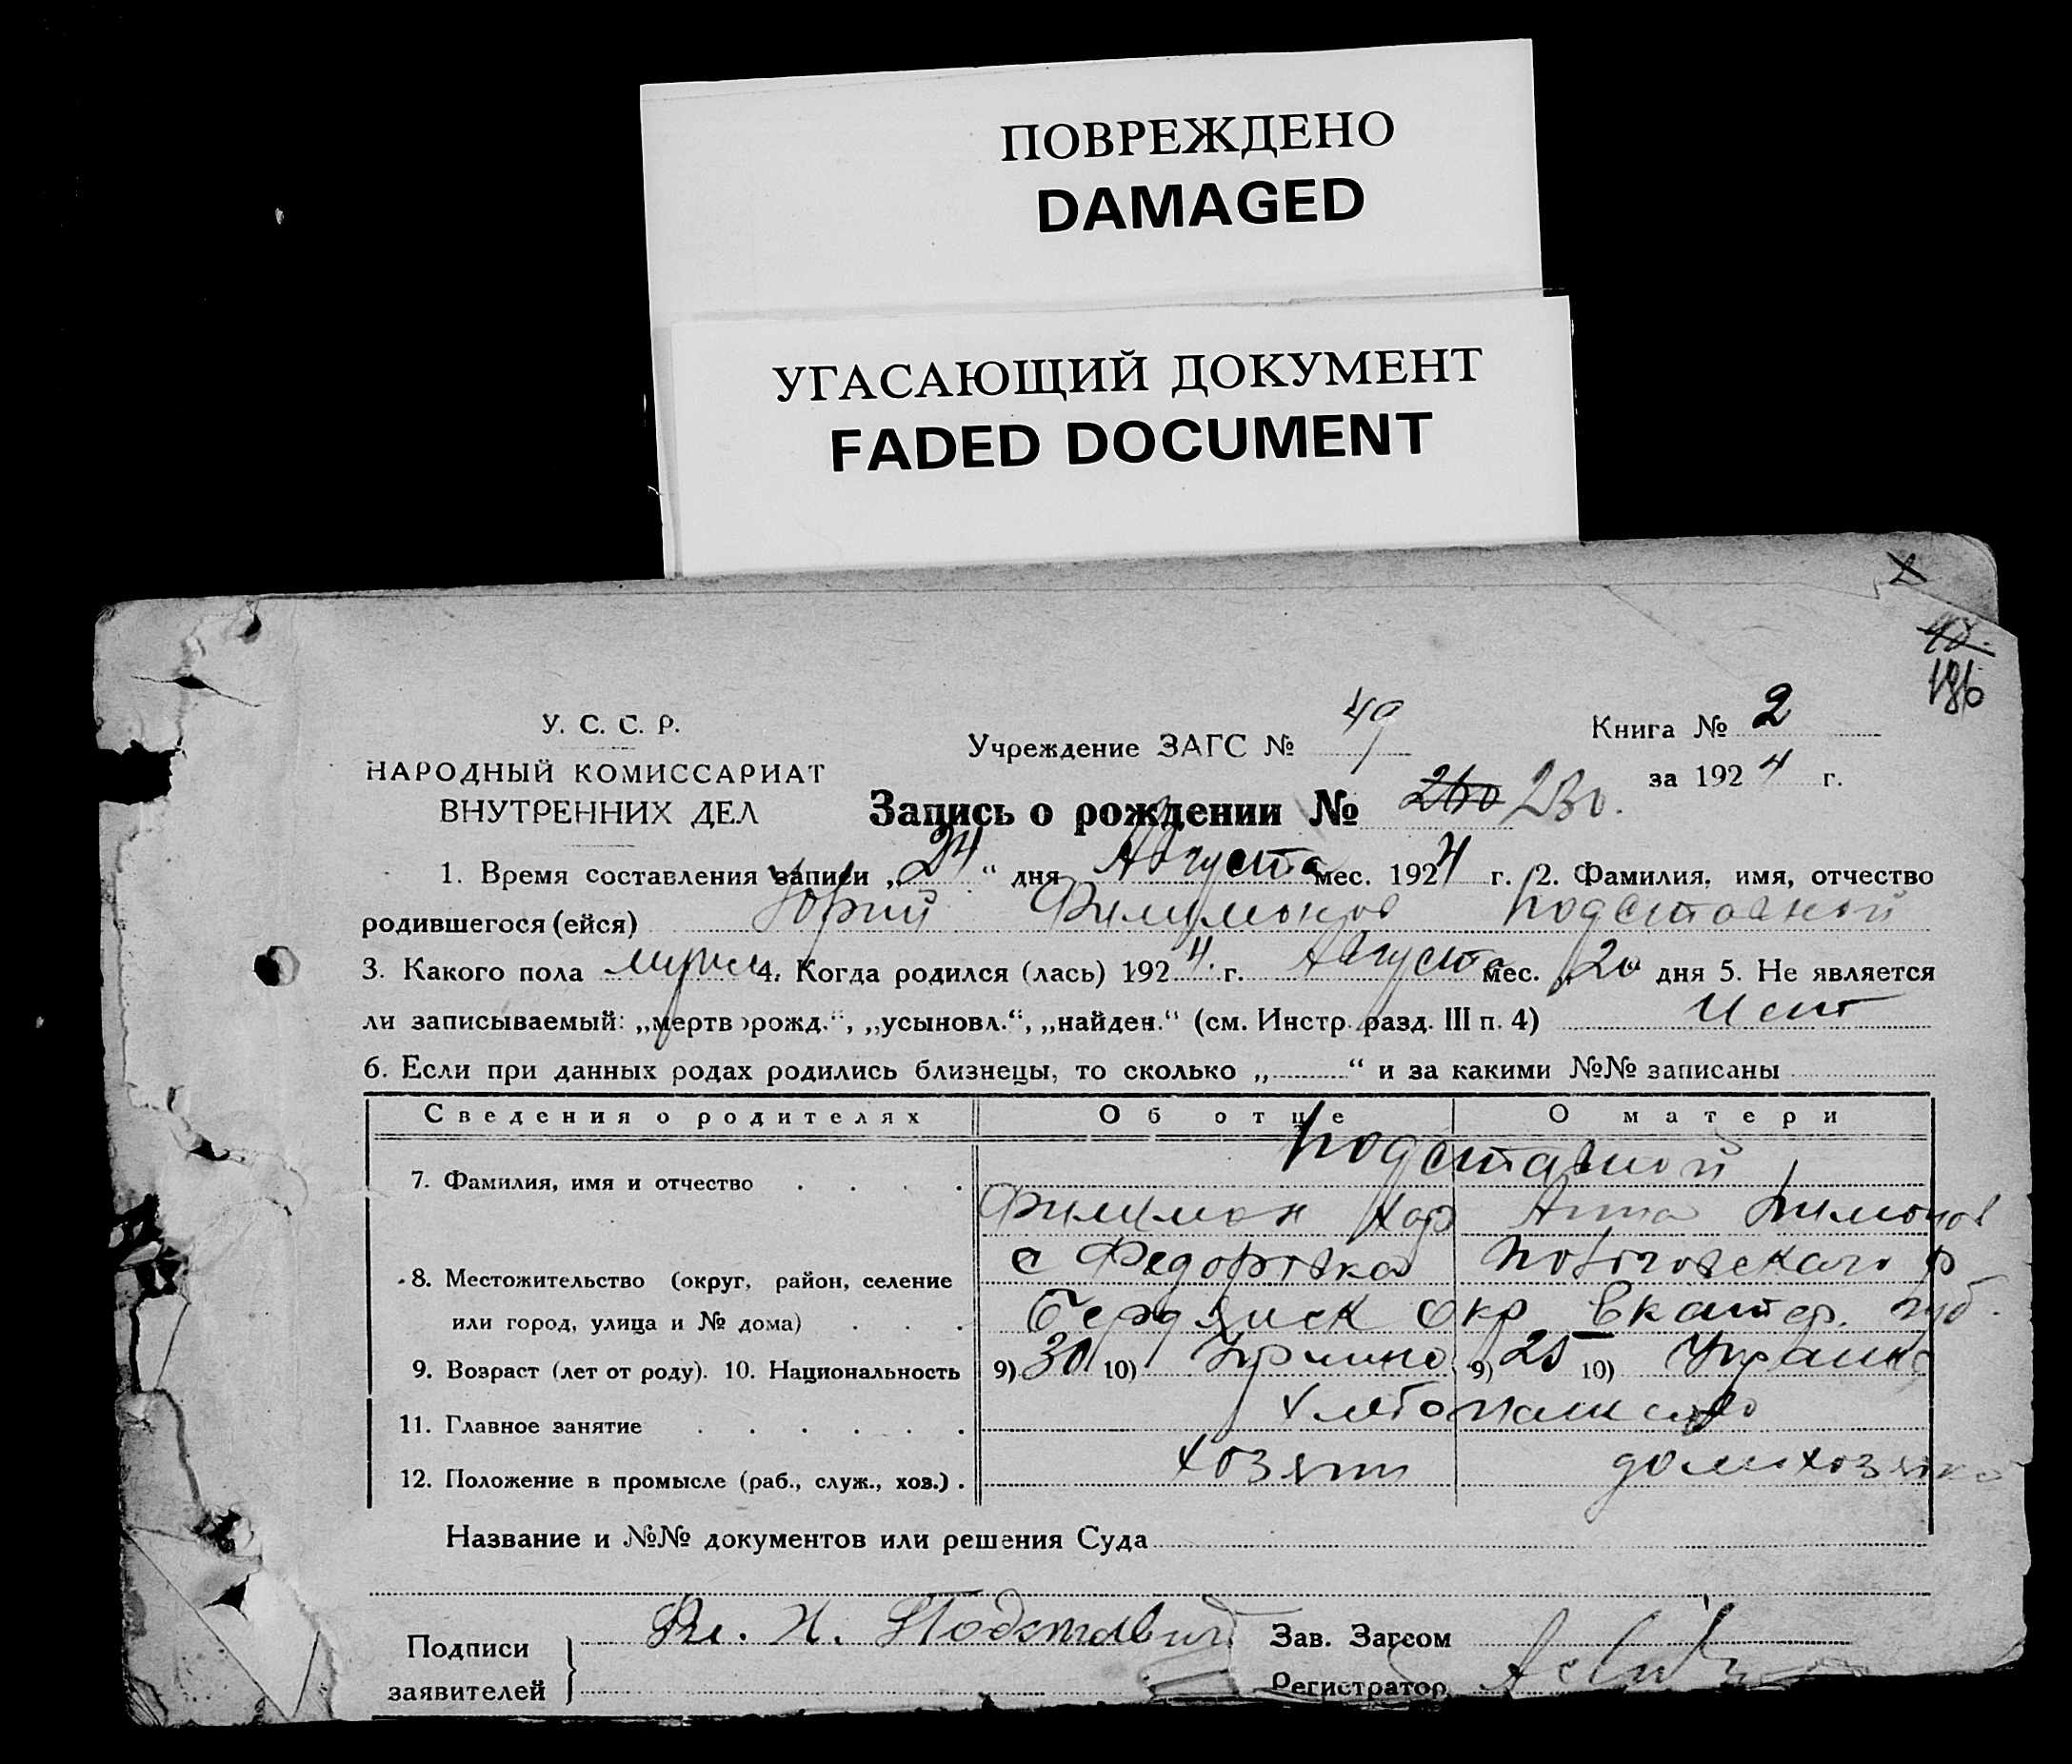 ПОВРЕЖДЕНО
DAMAGED
УГАСАЮЩИЙ ДОКУМЕНТ
FADED DOCUMENT
42.
186
У. С. С. Р.
НАРОДНЫЙ КОМИССАРИАТ
ВНУТРЕННИХ ДЕЛ
Учреждение ЗАГС № 49
Книга № 2
за 1924 г.
Запись о рождении № 260 230.
1. Время составления записи „24“ дня Августа мес. 1924 г. 2. Фамилия, имя, отчество
родившегося (ейся) Юрий Филимонов Подставной
3. Какого пола мужск 4. Когда родился (лась) 1924 г. Августа мес. „20 дня 5. Не является
ли записываемый: „мертворожд.“, „усыновл.“, „найден.“ (см. Инстр. разд. III п. 4)
6. Если при данных родах родились близнецы, то сколько „ “ и за какими №№ записаны
Сведения о родителях Об отце О матери
Подставной
7. Фамилия, имя и отчество
Филимон Хар Анна
с Федоровка
8. Местожительство (округ, район, селение
или город, улица и № дома) Бердянск окр Екатер. губ.
9. Возраст (лет от роду). 10. Национальность 9) 30 10) 9) 25 10) Украинс
11. Главное занятие хлебопашество
12. Положение в промысле (раб., служ., хоз.) хозяин домохозяйка
Название и №№ документов или решения Суда
Подписи
заявителей
Х. Подставной
Зав. Загсом
Регистратор